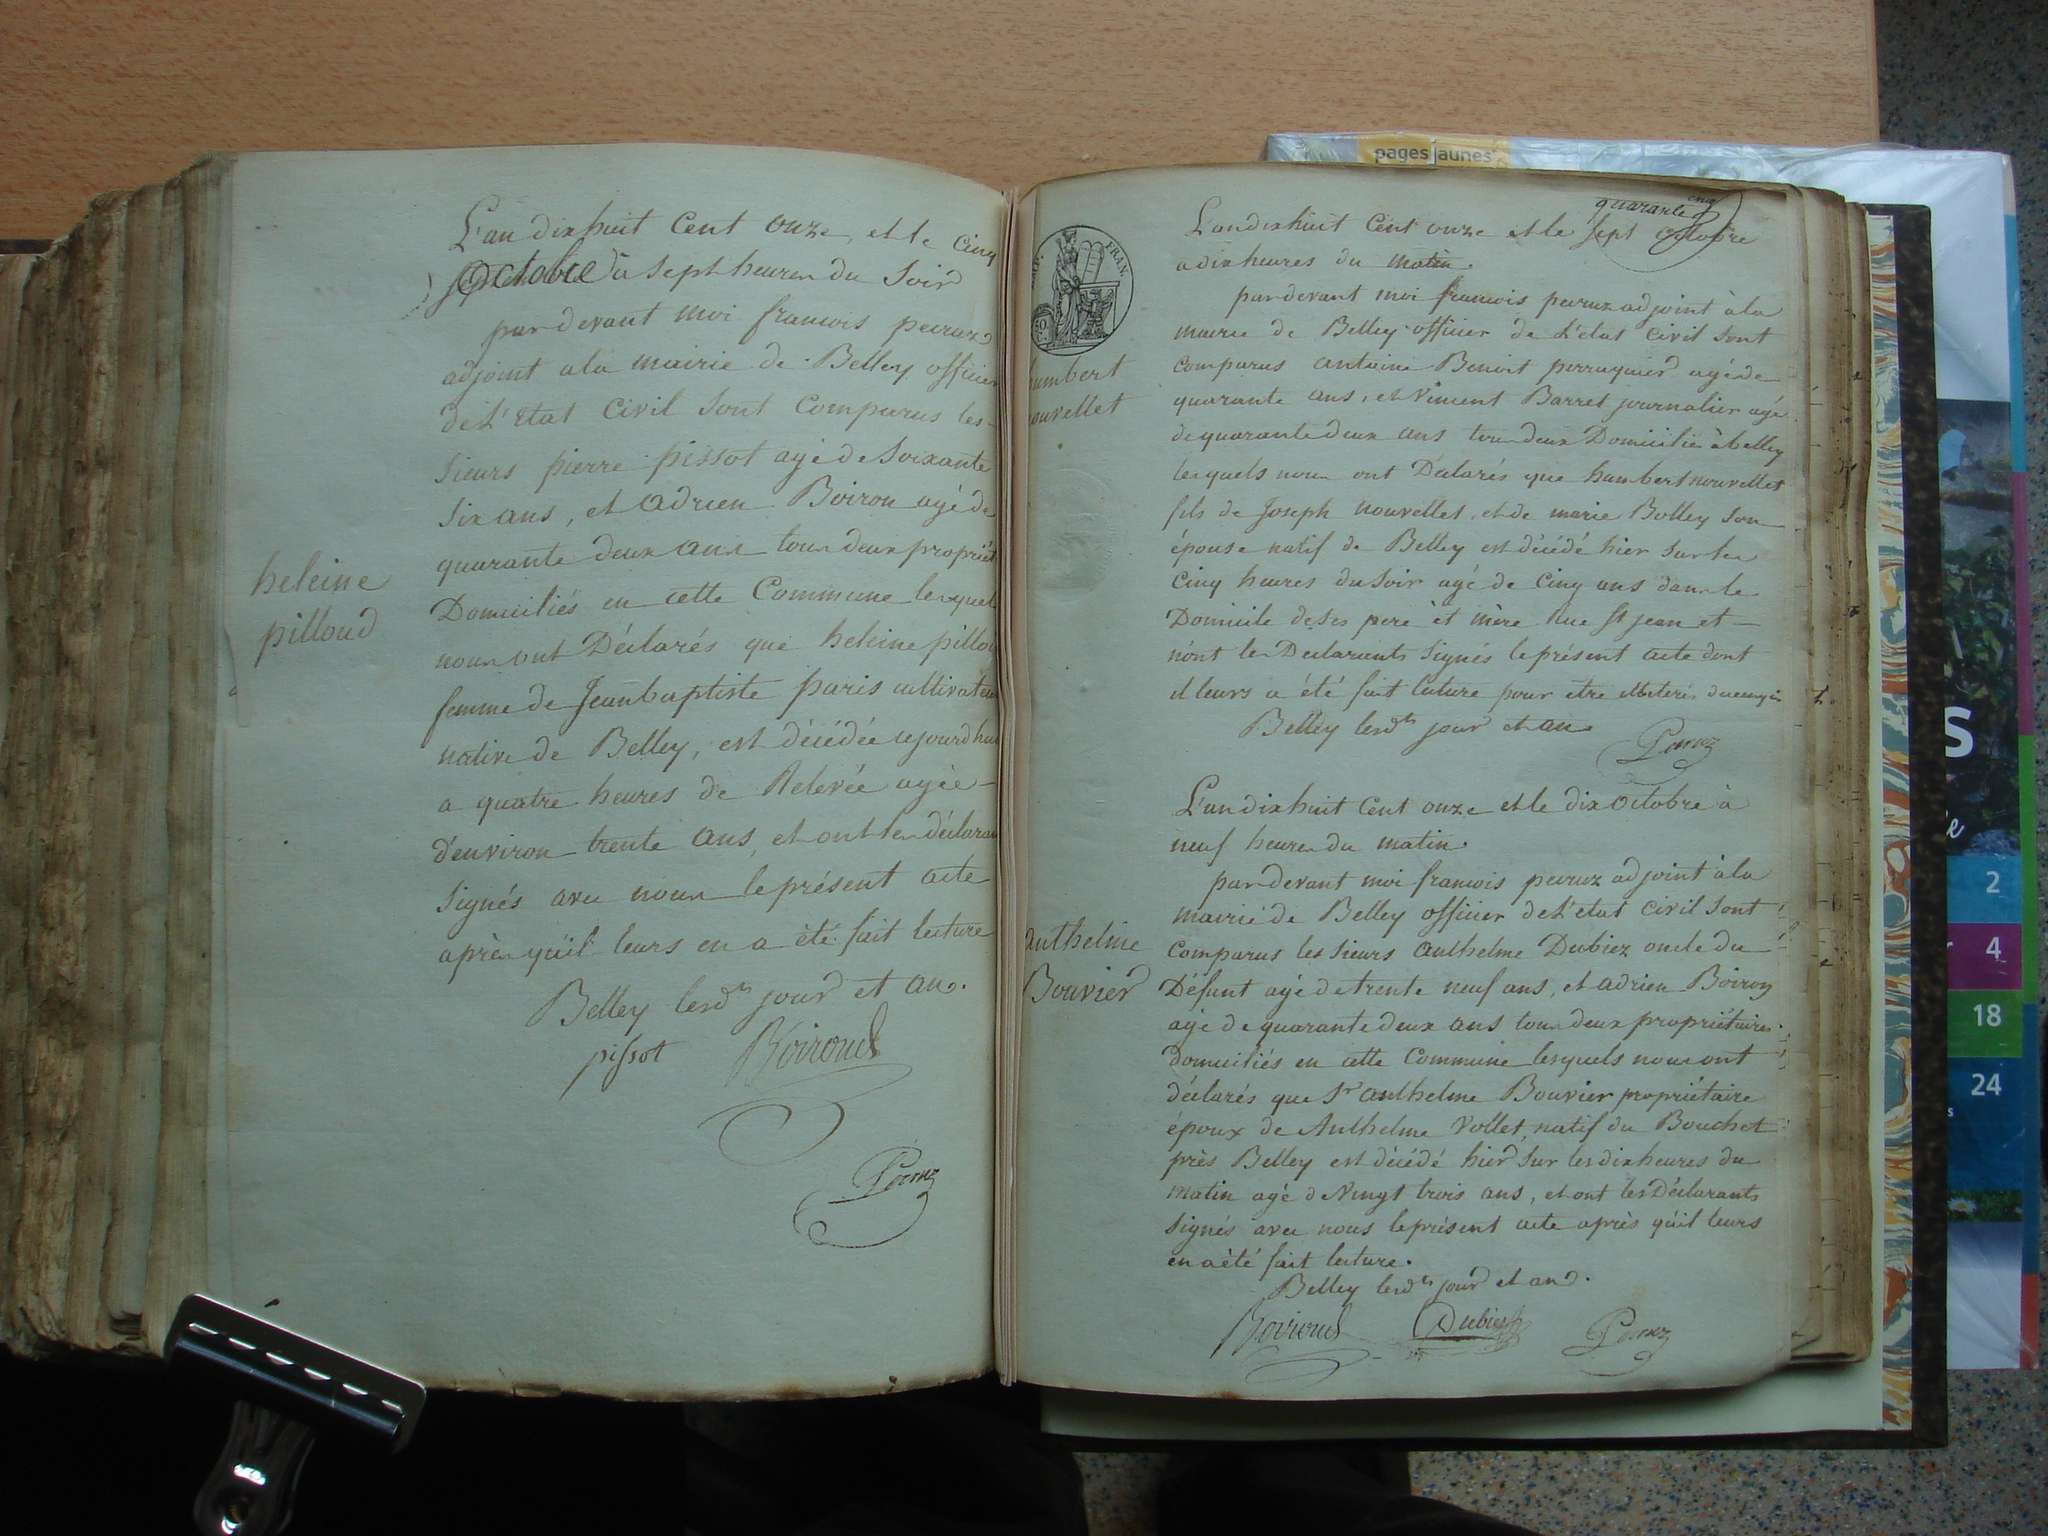 L'an dix huit Cent onze, et le cinq
Octobre à Sept heures du Soir
par devant moi francois peruz
adjoint a la mairie de Belley officier
de L'Etat Civil Sont Comparus les
Sieurs pierre pissot agé de Soixante
Six ans, et adrien Boiron agé de
quarante deux ans tous deux propriét
Domiciliés en cette Commune lesquels
nous ont Déclarés que heleine pillou
femme de Jean baptiste paris cultivateur
native de Belley, est décédée cejourdhui
a quatre heures de Relevée agée
d'environ trente ans, et ont les déclaran
Signés avec nous le présent acte
après qu'il leurs en a été fait lecture
Belley lesdts jour et an.
pissot Boiroud
heleine
pilloud
quarante cinq
L'an dix huit Cent onze et le Sept Octobre
a dix heures du matin.
par devant moi francois peruz adjoint à la
mairie de Belley officier de L'etat Civil Sont
Comparus antoine Benoit perruquier agé de
quarante ans, et Vincent Barret journalier agé
de quarante deux ans tous deux Domicilié à belley
lesquels nous ont Déclarés que humbert nouvellet
fils de Joseph nouvellet, et de marie Bolley Son
épouse natif de Belley est décédé hier Sur les
Cinq heures du Soir agé de Cinq ans dans le
Domicile de Ses pere et mère Rue St jean et
n'ont les Déclarants Signés le présent acte dont
il leurs a été fait lecture pour etre
Belley lesdts jour et an
FRAN.
humbert
nouvellet
L'an dix huit Cent onze et le dix Octobre à
neuf heures du matin.
par devant moi francois peruz adjoint à la
mairie de Belley officier de L'etat Civil Sont
Comparus les Sieurs Anthelme Dubiez oncle du
Défunt agé de trente neuf ans, et adrien Boiron
agé de quarante deux ans tous deux propriétaires
domiciliés en cette Commune lesquels nous ont
déclarés que Sr anthelme Bouvier propriétaire
époux de Anthelme Vollet, natif du Bouchet
près Belley est décédé hier Sur les dix heures du
matin agé de Vingt trois ans, et ont les Déclarants
Signés avec nous le présent acte après qu'il leurs
en a été fait lecture.
Belley lesdts jour et an.
Boiroud Dubiez
anthelme
Bouvier
pages jaunes
S
2
4
18
24